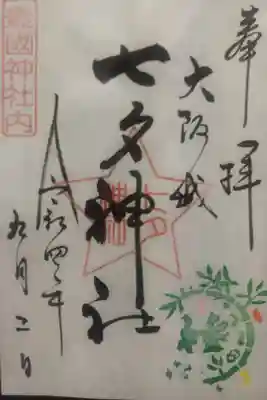 奉拝
大阪城
七夕神社
令和四年
九月二日
豊國神社内